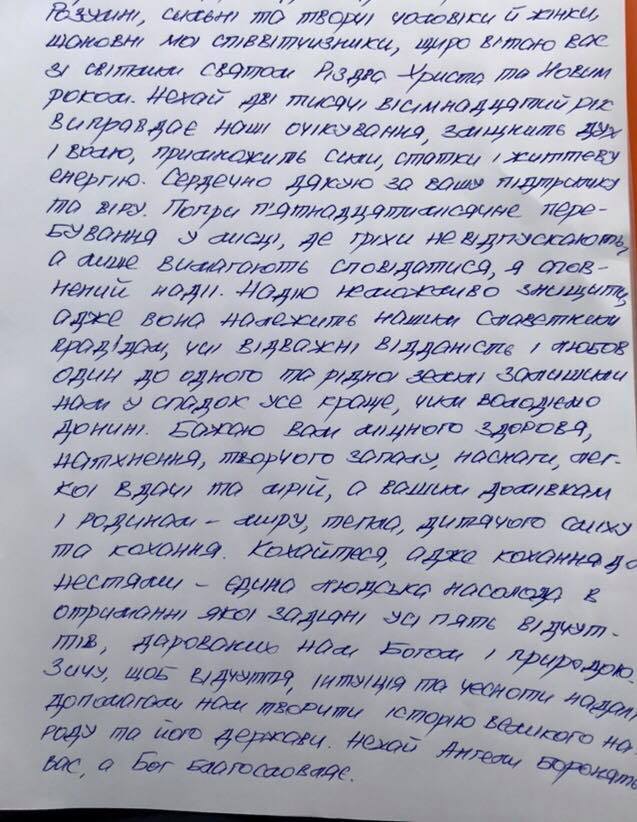 Розумні, сильні та творчі чоловіки й жінки,
шановні мої співвітчизники, щиро вітаю вас
зі світлим святом Різдва Христа та Новим
роком. Нехай дві тисячі вісімнадцятий рік
виправдає наші очікування, зміцнить дух
і волю, примножить сили, статки і життєву
енергію. Сердечно дякую за вашу підтримку
та віру. Попри п'ятнадцятимісячне пере-
бування у місці, де гріхи не відпускають,
а лише вимагають сповідатися, я спов-
нений надії. Надію неможливо знищити,
адже вона належить нашим славетним
прадідам, чиї відважні відданість і любов
один до одного та рідної землі залишили
нам у спадок усе краще, чим володіємо
донині. Бажаю вам міцного здоровя,
натхнення, творчого запалу, наснаги, лег-
кої вдачі та мрій, а вашим домівкам
і родинам - миру, тепла, дитячого сміху
та кохання. Кохайтеся, адже кохання до
нестями - єдина людська насолода в
отриманні якої задіяні усі п'ять відчут-
тів, дарованих нам Богом і природою.
Зичу, щоб відчуття, інтуїція та чесноти надалі
допомагали нам творити історію великого на-
роду та його держави. Нехай Ангели боронять
вас, а Бог благословляє.